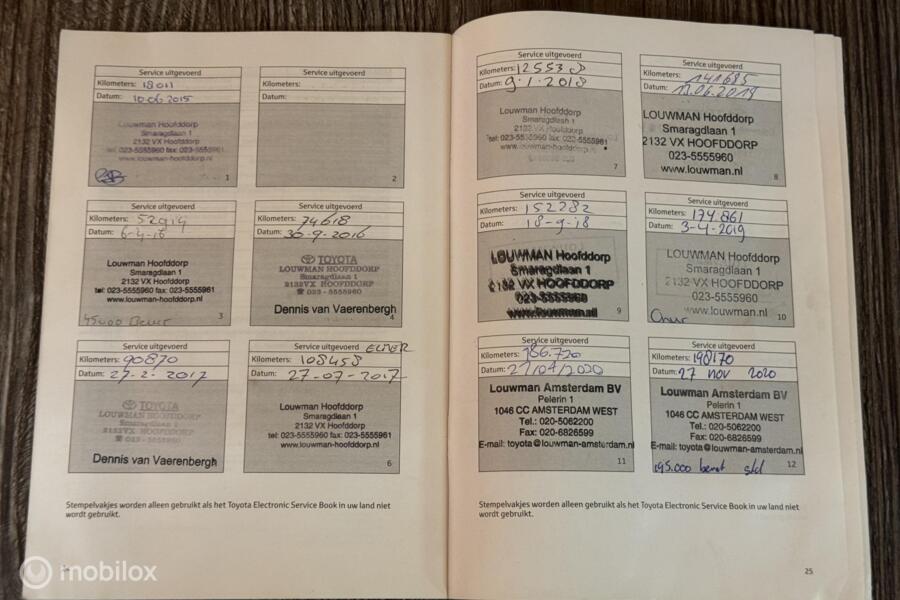 Service uitgevoerd
Kilometers: 18011
Datum: 10.06.2015
Louwman Hoofddorp
Smaragdlaan 1
2132 VX Hoofddorp
tel: 023-5555960 fax: 023-5555961
www.louwman-hoofddorp.nl
1
Service uitgevoerd
Kilometers:
Datum:
2
Service uitgevoerd
Kilometers: 52914
Datum: 6-4-16
Louwman Hoofddorp
Smaragdlaan 1
2132 VX Hoofddorp
tel: 023-5555960 fax: 023-5555961
www.louwman-hoofddorp.nl
45000 Beurt
3
Service uitgevoerd
Kilometers: 74618
Datum: 30-9-2016
TOYOTA
LOUWMAN HOOFDDORP
Smaragdlaan 1
2132VX HOOFDDORP
☎ 023 - 5555960
Dennis van Vaerenbergh
4
Service uitgevoerd
Kilometers: 90870
Datum: 27-2-2017
TOYOTA
LOUWMAN HOOFDDORP
Smaragdlaan 1
2132VX HOOFDDORP
☎ 023 - 5555960
Dennis van Vaerenbergh
Service uitgevoerd ELMER
Kilometers: 108458
Datum: 27-07-2017
Louwman Hoofddorp
Smaragdlaan 1
2132 VX Hoofddorp
tel: 023-5555960 fax: 023-5555961
www.louwman-hoofddorp.nl
6
Stempelvakjes worden alleen gebruikt als het Toyota Electronic Service Book in uw land niet
wordt gebruikt.
Service uitgevoerd
Kilometers: 12553
Datum: 9.1.2018
Louwman Hoofddorp
Smaragdlaan 1
2132 VX Hoofddorp
tel: 023-5555960 fax: 023-5555961
www.louwman-hoofddorp.nl
7
Service uitgevoerd
Kilometers: 141685
Datum: 11.06.2019
LOUWMAN Hoofddorp
Smaragdlaan 1
2132 VX HOOFDDORP
023-5555960
www.louwman.nl
8
Service uitgevoerd
Kilometers: 152282
Datum: 18-9-18
LOUWMAN Hoofddorp
Smaragdlaan 1
2132 VX HOOFDDORP
023-5555960
www.louwman.nl
9
Service uitgevoerd
Kilometers: 174.861
Datum: 3-4-2019
LOUWMAN Hoofddorp
Smaragdlaan 1
2132 VX HOOFDDORP
023-5555960
www.louwman.nl
10
Service uitgevoerd
Kilometers: 186.720
Datum: 27/04/2020
Louwman Amsterdam BV
Pelerin 1
1046 CC AMSTERDAM WEST
Tel.: 020-5062200
Fax: 020-6826599
E-mail: toyota@louwman-amsterdam.nl
11
Service uitgevoerd
Kilometers: 198170
Datum: 27 nov 2020
Louwman Amsterdam BV
Pelerin 1
1046 CC AMSTERDAM WEST
Tel.: 020-5062200
Fax: 020-6826599
E-mail: toyota@louwman-amsterdam.nl
195.000 beurt std
12
Stempelvakjes worden alleen gebruikt als het Toyota Electronic Service Book in uw land niet
wordt gebruikt.
25
mobilox